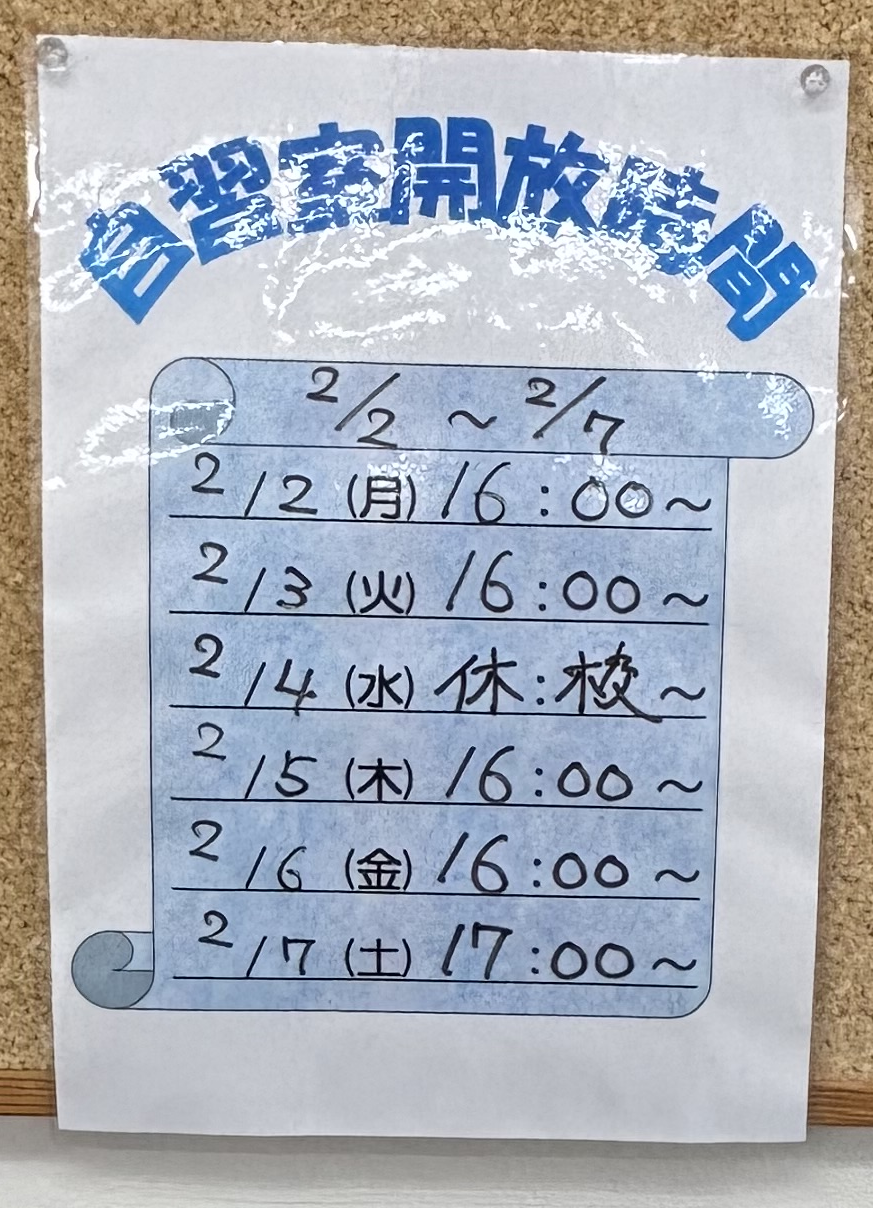 自習室開放時間
2/2 ~ 2/7
2/2 (月) 16:00~
2/3 (火) 16:00~
2/4 (水) 休:校~
2/5 (木) 16:00~
2/6 (金) 16:00~
2/7 (土) 17:00~